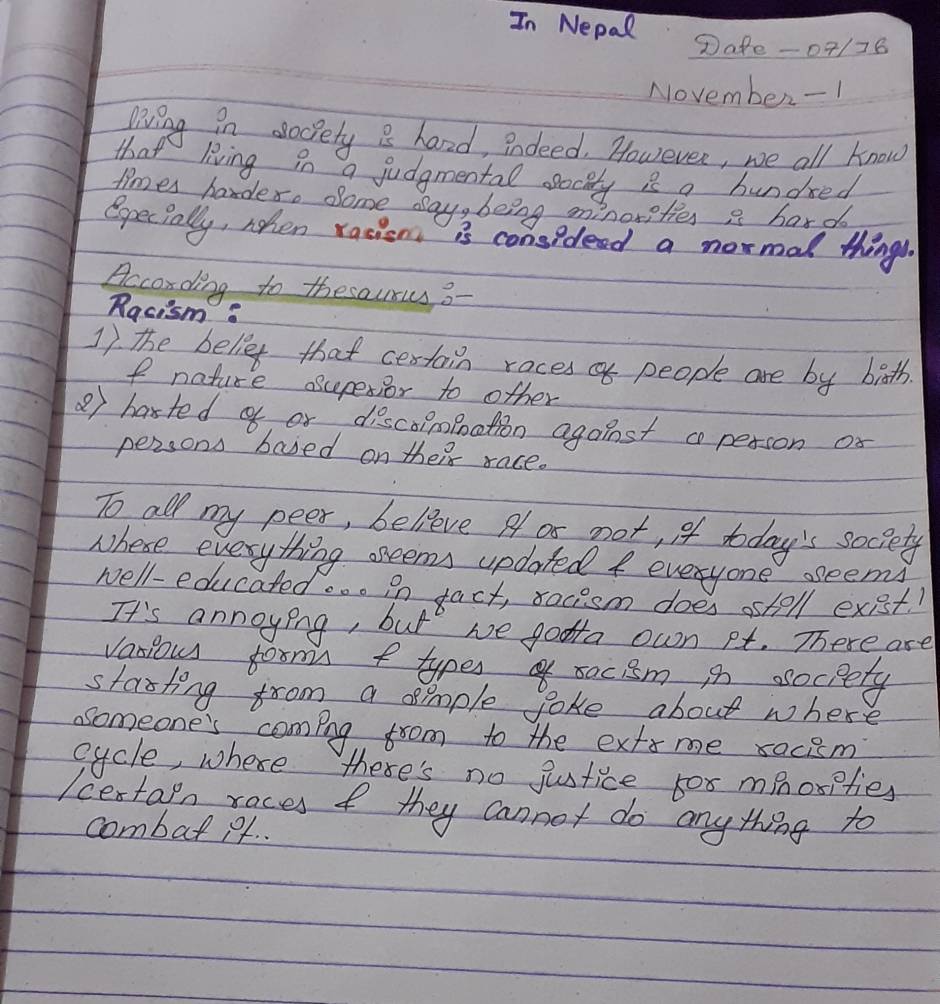 In Nepal
Date - 07/76
November - 1
living in society is hard, indeed. However, we all know
that living in a judgmental socity is a hundred
times harder. Some say, being minorities is hard.
Especially, when racism is considered a normal things.
According to thesaurus :-
Racism :
1) The belief that certain races of people are by birth.
& nature superior to other
2) harted of or discrimination against a person or
persons based on their race.
To all my peer, believe it or not, if today's society
where everything seems updated & everyone seems
well-educated... in fact, racism does still exist!
It's annoying, but we gotta own it. There are
various forms & types of racism in society
starting from a simple joke about where
someone's coming from to the extrme racism
cycle, where there's no justice for minorities
/certain races & they cannot do anything to
combat it..